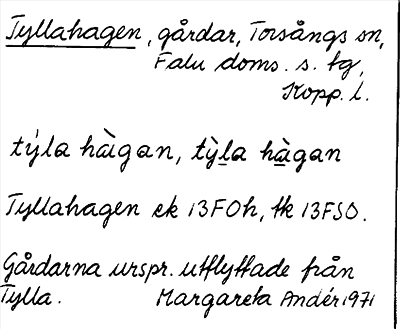 Tyllahagen, gårdar, Torsångs sn,
Falu doms. s. tg,
Kopp. l.
týla hàgan, tỳl̲a hà̲gan
Tyllahagen ek 13F0h, tk 13FSO.
Gårdarna urspr. utflyttade från
Tylla. Margareta Andér 1971